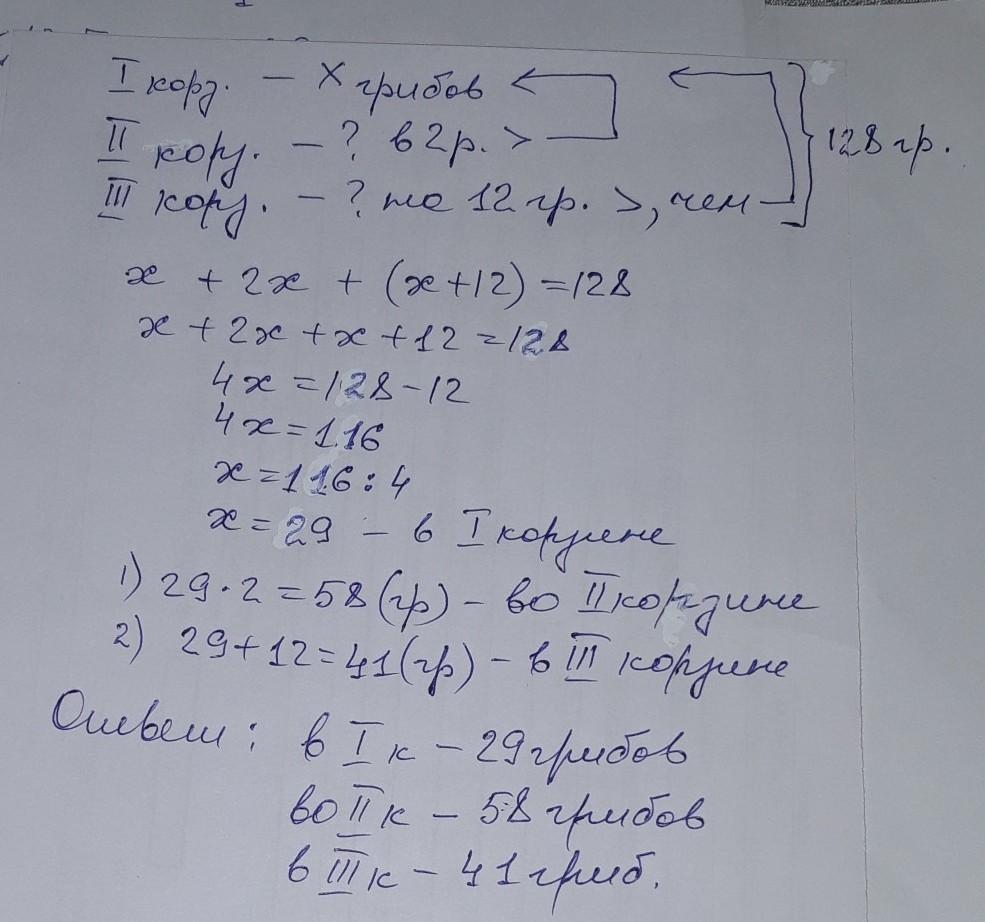 I корз. – х грибов
II корз. – ? в 2 р. >
III корз. – ? на 12 гр. >, чем
128 гр.
х + 2х + (х+12) =128
х + 2х + х + 12 =128
4х =128-12
4х=116
х=116:4
х= 29 – в I корзине
1) 29·2=58(гр) – во II корзине
2) 29+12=41(гр) – в III корзине
Ответ: в I к – 29 грибов
во II к – 58 грибов
в III к – 41 гриб.